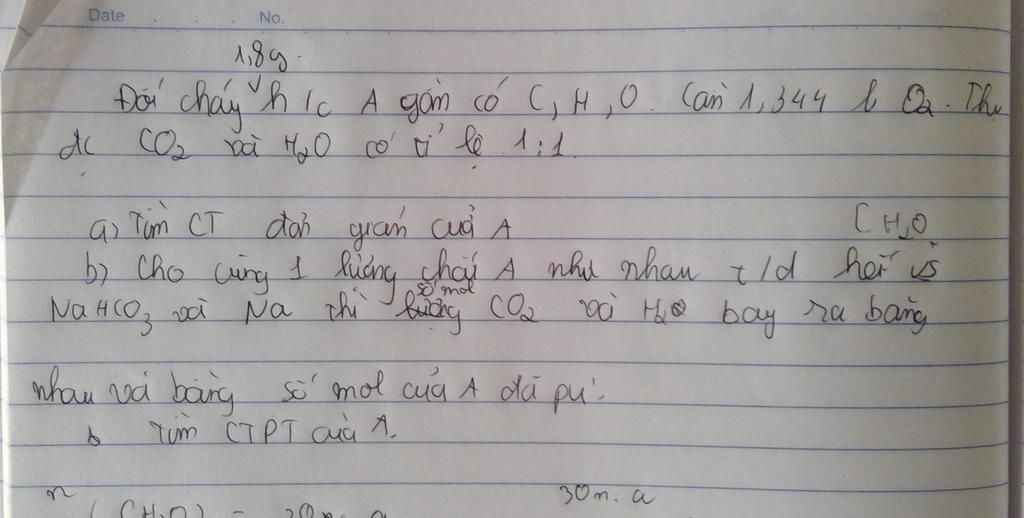 Date No.
1,8g.
Đốt cháy h/c A gồm có C, H, O. Cần 1,344 l O2. Thu
đc CO2 và H2O có tỉ lệ 1:1.
a) Tìm CT đơn giản của A CH2O
b) Cho cùng 1 lượng chất A như nhau t/d hết vs
số mol
NaHCO3 và Na thì lượng CO2 và H2 bay ra bằng
nhau và bằng số mol của A đã pư.
Tìm CTPT của A.
n 30n. a
(CH2O) = 30n. a